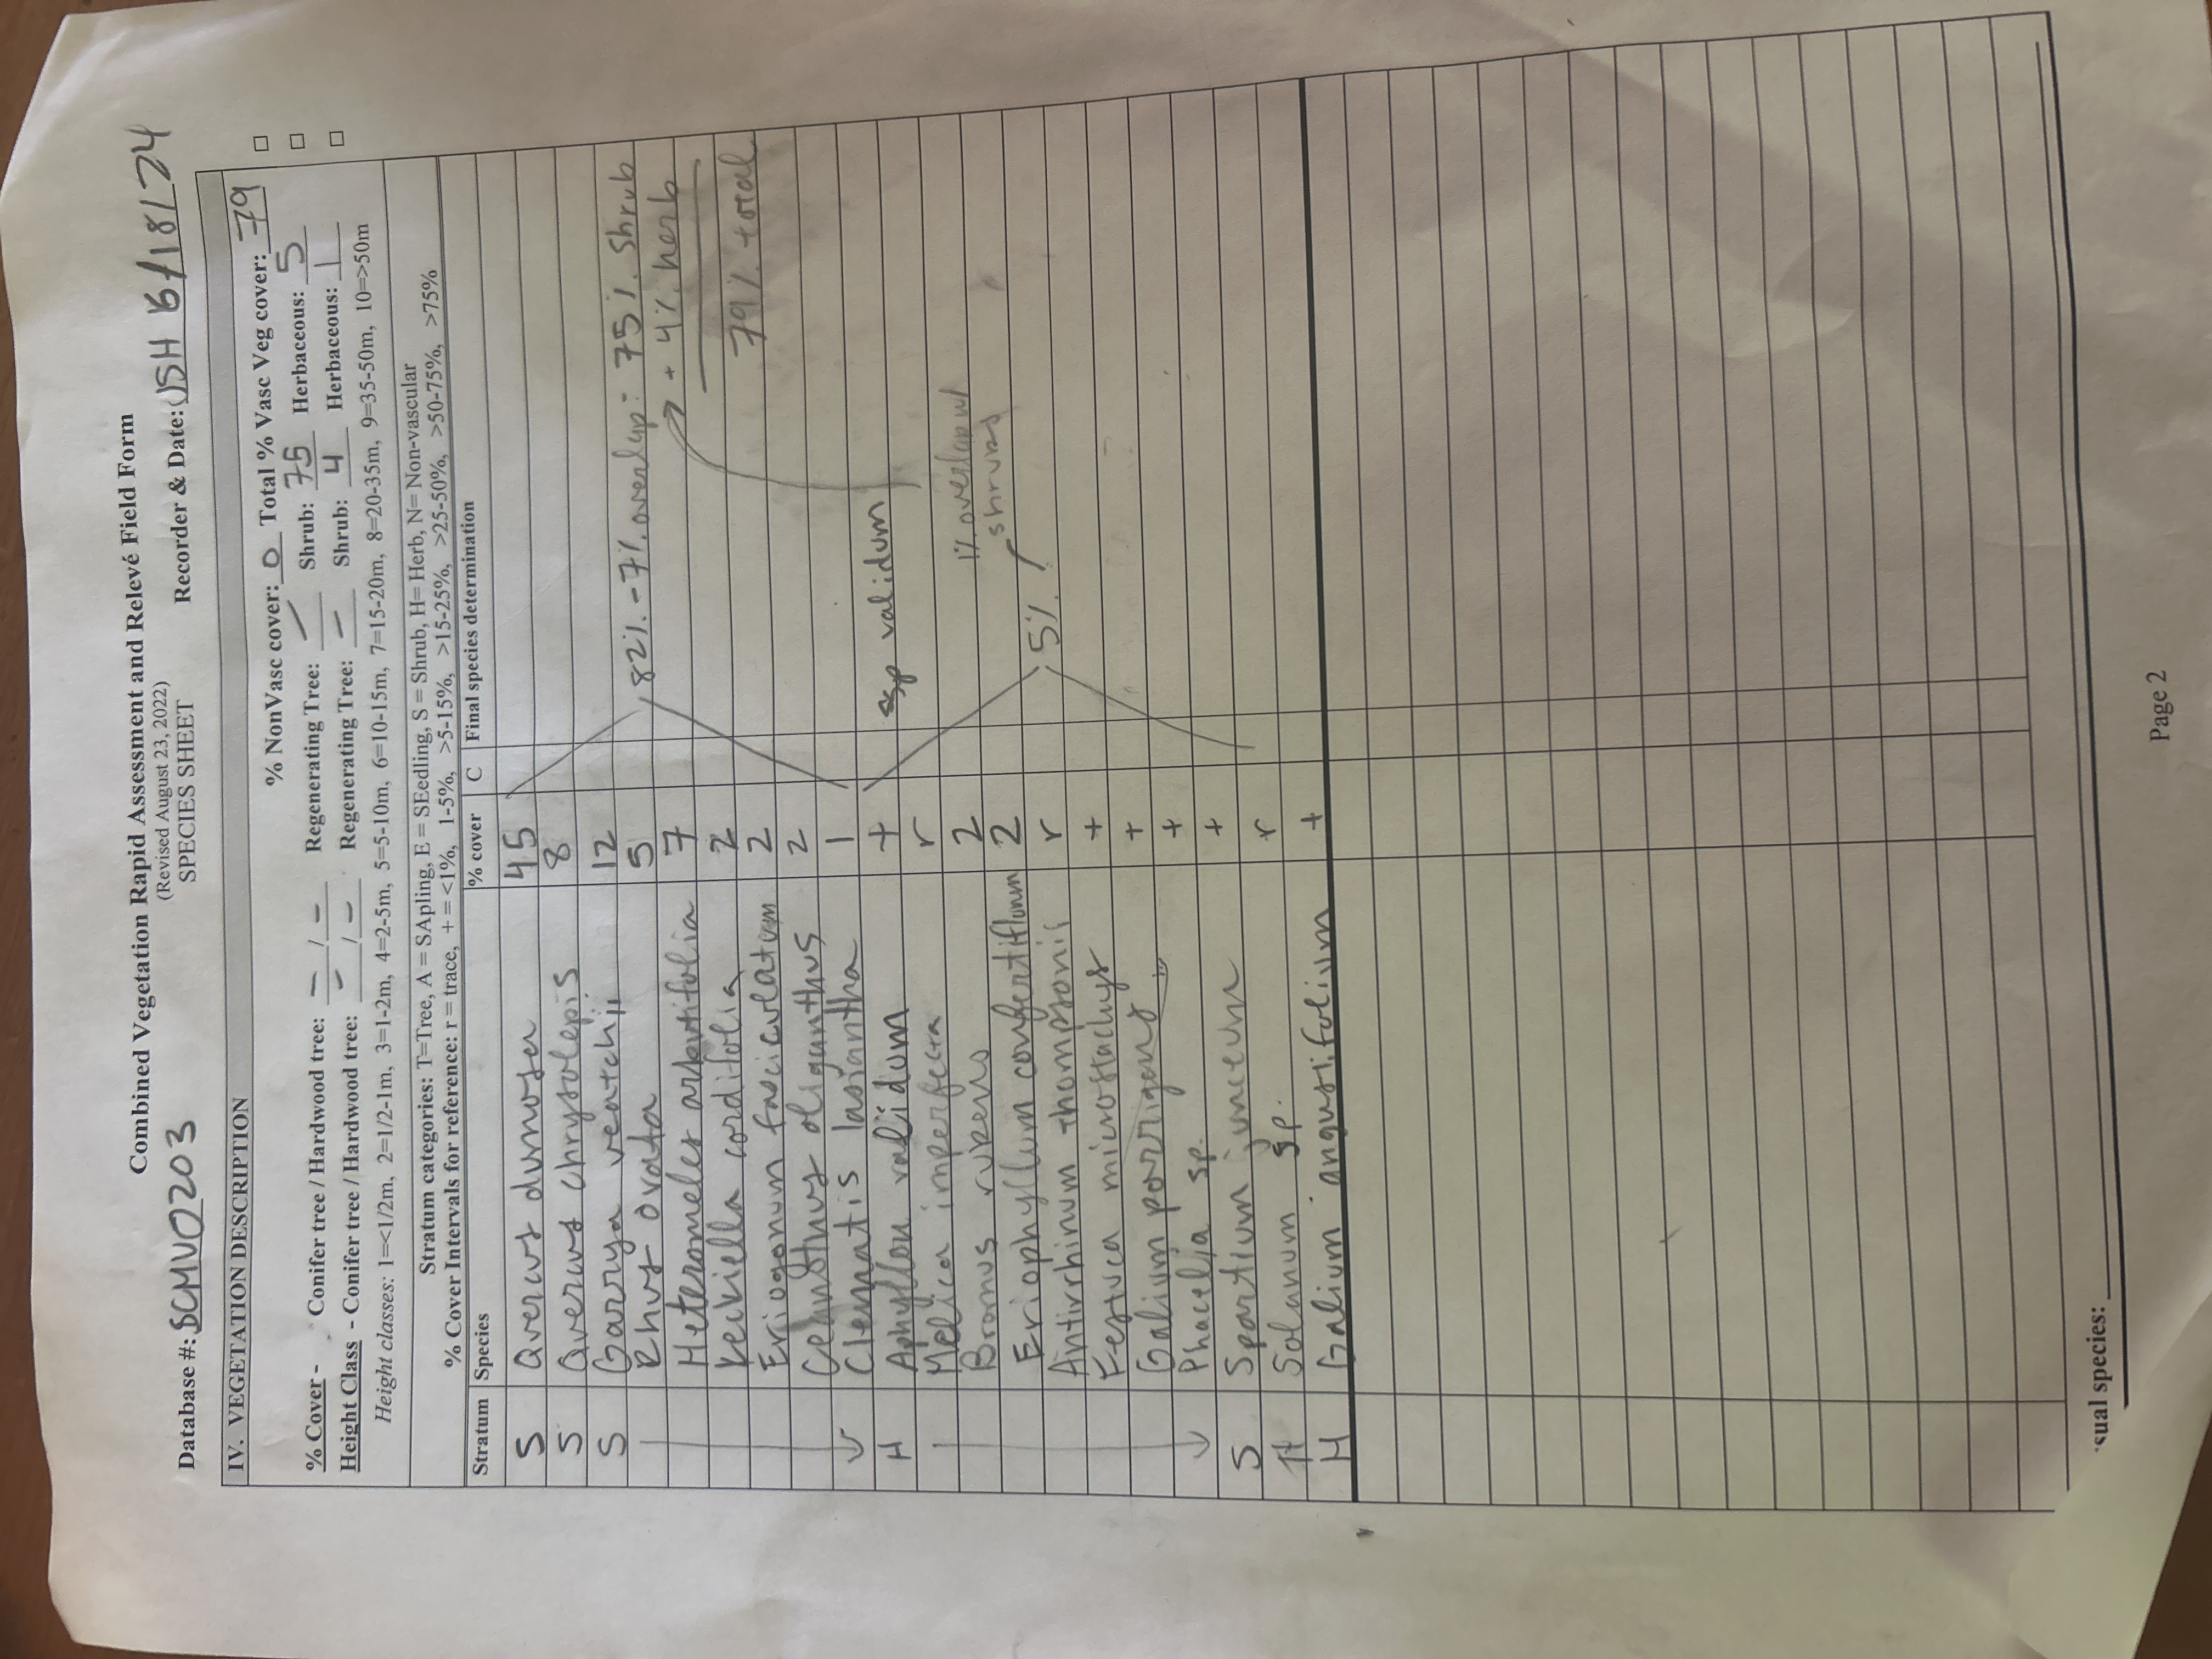 Combined Vegetation Rapid Assessment and Relevé Field Form
(Revised August 23, 2022)
SPECIES SHEET
Database #: SCMU0203 Recorder & Date: JSH 6/18/24
IV. VEGETATION DESCRIPTION
% NonVasc cover: 0 Total % Vasc Veg cover: 79
% Cover - Conifer tree / Hardwood tree: - / - Regenerating Tree: - Shrub: 75 Herbaceous: 5
Height Class - Conifer tree / Hardwood tree: - / - Regenerating Tree: - Shrub: 4 Herbaceous: 1
Height classes: 1=<1/2m, 2=1/2-1m, 3=1-2m, 4=2-5m, 5=5-10m, 6=10-15m, 7=15-20m, 8=20-35m, 9=35-50m, 10=>50m
Stratum categories: T=Tree, A = SApling, E = SEedling, S = Shrub, H= Herb, N= Non-vascular
% Cover Intervals for reference: r = trace, + = <1%, 1-5%, >5-15%, >15-25%, >25-50%, >50-75%, >75%
Stratum Species % cover C Final species determination
S Quercus dumosa 45
S Quercus chrysolepis 8
S Garrya veatchii 12
Rhus ovata 5 82% - 7% overlap = 75% shrub
Heteromeles arbutifolia 7 + 4% herb
Keckiella cordifolia 2
Eriogonum fasciculatum 2 79% total
Ceanothus oliganthus 2
Clematis lasiantha 1
H Aphyllon validum + ssp validum
Melica imperfecta r
Bromus rubens 2 1% overlap w/
shrubs
Eriophyllum confertiflorum 2 5%
Antirrhinum thompsonii r
Festuca microstachys +
Galium porrigens +
Phacelia sp. +
S Spartium junceum +
H Solanum sp. r
H Galium angustifolium +
sual species:
Page 2